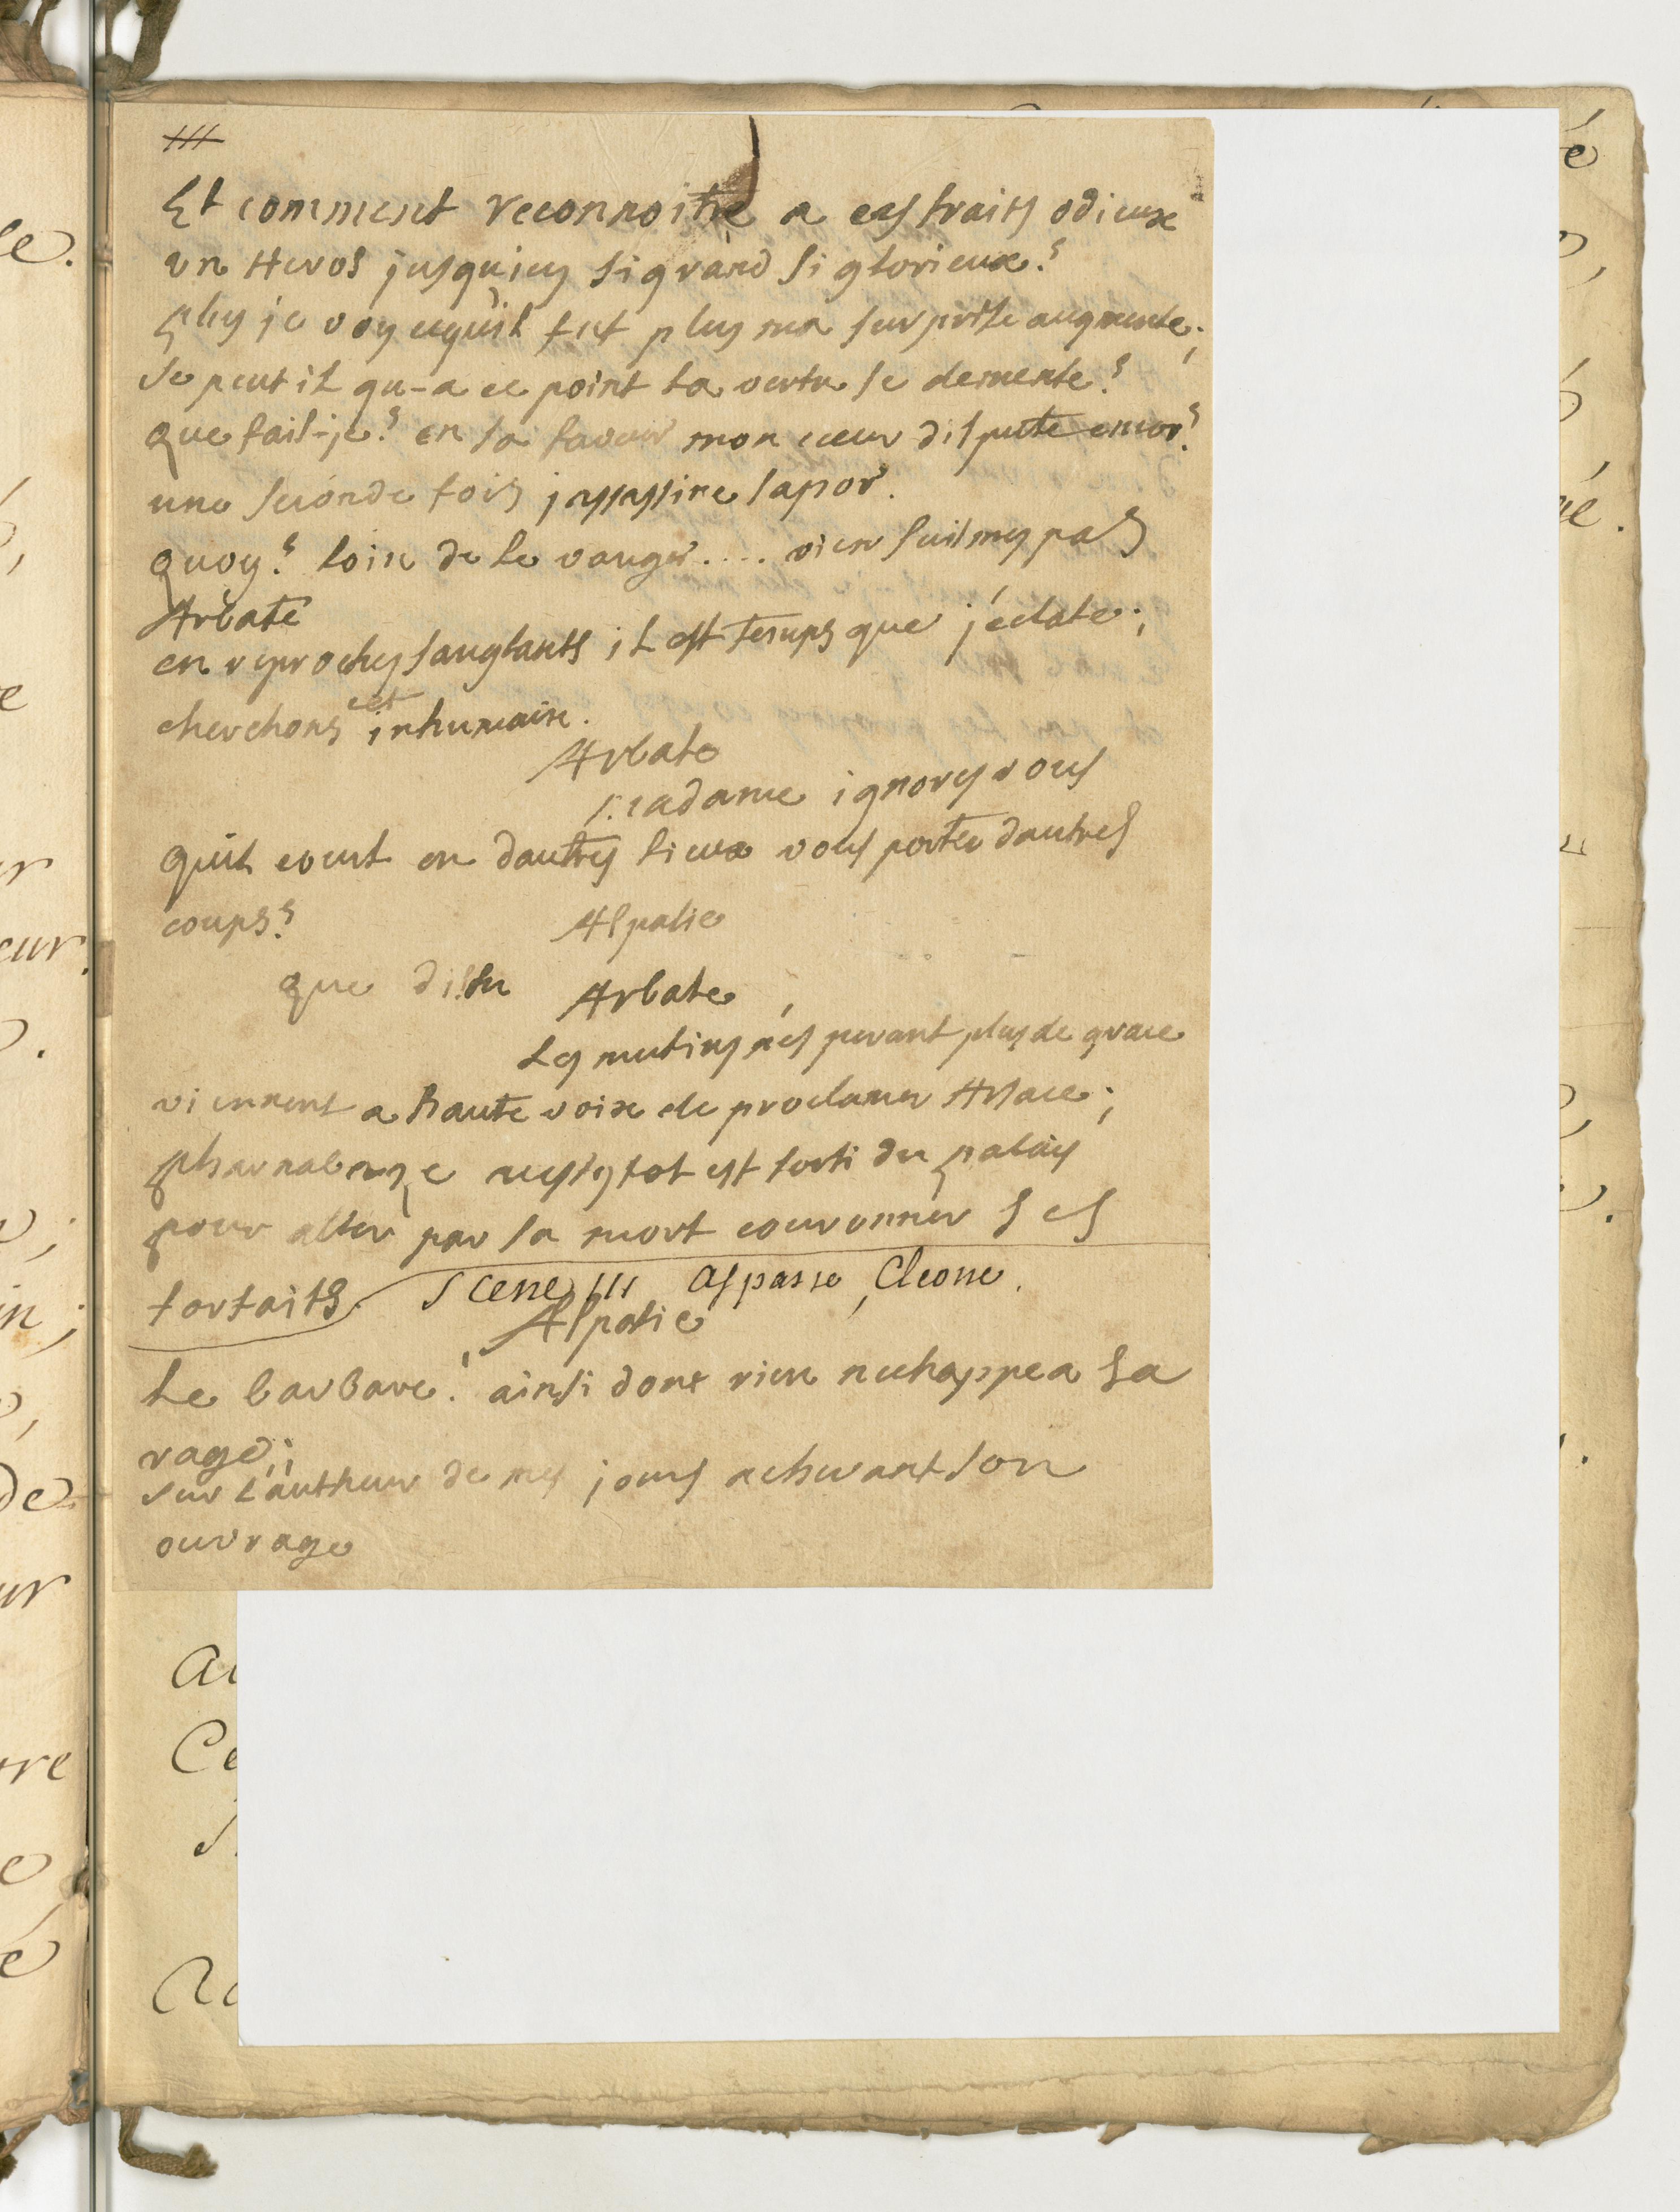 Et comment reconnoitre a ces traits odieux
un Heros jusquicy si grand si glorieux?
plus je voy cequil fut plus ma surprise augmente;
se peut il qu-a ce point la vertu se demente?
que fais-je? en sa faveur mon cœur dispute encor?
une seconde fois jassassine sapor.
quoy? loin de le vanger.... vien suis mes pas
Arbate
en reproches sanglants il est temps que j'eclate;
cherchons cet inhumain.
Arbate
madame ignores vous
quil court en dautres lieux vous porter dautres
coups?
Aspasie
que dis tu
Arbate
les mutins nes perant plus de grace
viennent a haute voix de proclamer Arsace;
pharnabaze aussytot est sorti du palais
pour aller par sa mort couronner ses
forfaits.
Scene III aspasie, Cleone.
Aspasie
Le barbare! ainsi donc rien nechappe a sa
rage;
sur l'autheur de mes jours achevant son
ouvrage